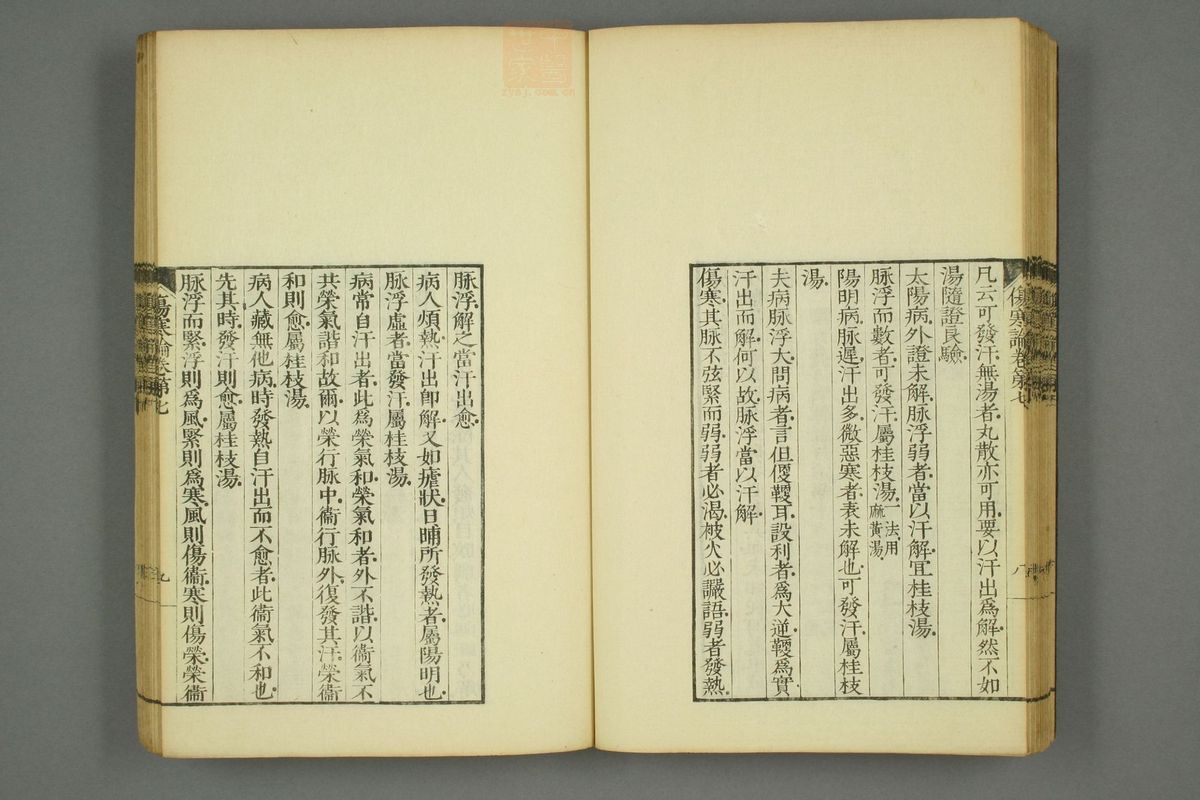 凡云可發汗無湯者丸散亦可用要以汗出爲解然不如
湯隨證良驗
太陽病外證未解脉浮弱者當以汗解宜桂枝湯
脉浮而數者可發汗屬桂枝湯一法用麻黃湯
陽明病脉遲汗出多微惡寒者表未解也可發汗屬桂枝
湯
夫病脉浮大問病者言但便鞕耳設利者爲大逆鞕爲實
汗出而解何以故脉浮當以汗解
傷寒其脉不弦緊而弱弱者必渴被火必讝語弱者發熱
傷寒論卷第七
八
脉浮解之當汗出愈
病人煩熱汗出卽解又如瘧狀日晡所發熱者屬陽明也
脉浮虛者當發汗屬桂枝湯
病常自汗出者此爲榮氣和榮氣和者外不諧以衞氣不
共榮氣諧和故爾以榮行脉中衞行脉外復發其汗榮衞
和則愈屬桂枝湯
病人藏無他病時發熱自汗出而不愈者此衞氣不和也
先其時發汗則愈屬桂枝湯
脉浮而緊浮則爲風緊則爲寒風則傷衞寒則傷榮榮衞
傷寒論卷第七
九
zysj.com.cn